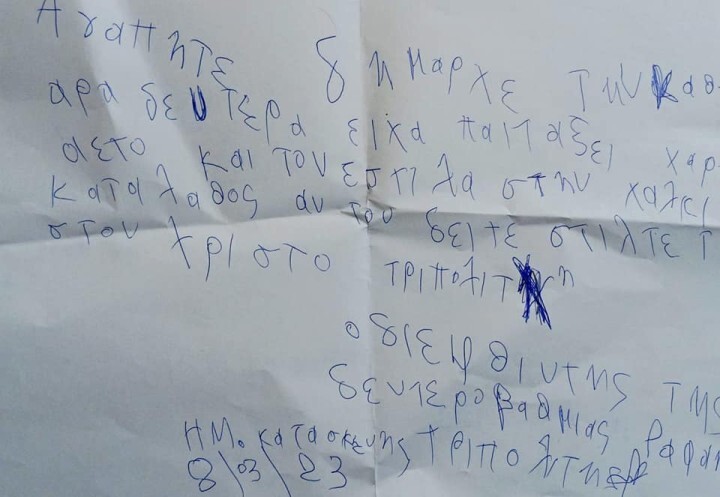 Αγαπητε δημαρχε την καθ
αρα δευτερα ειχα παιταξει χαρ
αετο και τον εστιλα στην χαλκι
καταλαθος αν τον δειτε στιλτε τ
στον χριστο τριπολιτη
ο διεφθιντης της
δευτεροβαθμιας ραφα
ΗΜ. κατασκευης τριπολιτης
8/03/23